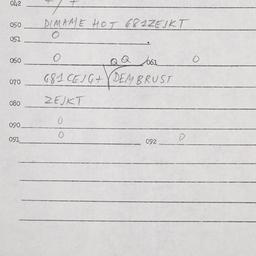 042
050 DIMAME HOT 681ZEJKT
051 0
060 0 061 0
070 681 CEJGT DEMBRUST
080 ZEJKT
090 0
091 0 092 0